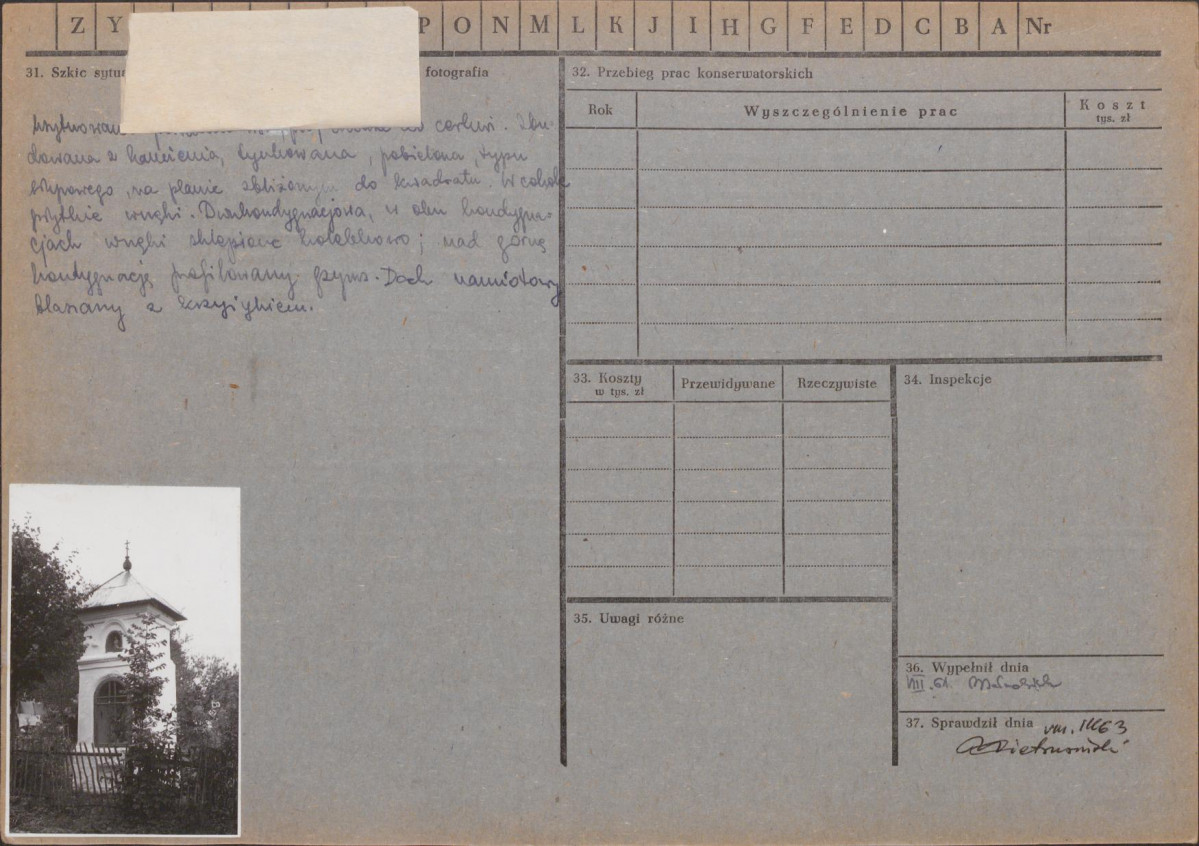 Z Y P O N M L K J I H G F E D C B A Nr
31. Szkic fotografia
cerkwi. Zbu-
dowana z kamienia, tynkowana, pobielona, typu
słupowego, na planie zbliżonym do kwadratu. W cokole
płytkie wnęki. Dwukondygnacjowa, w obu kondygna-
cjach wnęki sklepione kolebkowo; nad górną
kondygnacją profilowany gzyms. Dach namiotowy
blaszany z krzyżykiem.
32. Przebieg prac konserwatorskich
Rok Wyszczególnienie prac Koszt
tys. zł
33. Koszty Przewidywane Rzeczywiste
w tys. zł
34. Inspekcje
35. Uwagi różne
36. Wypełnił dnia
VIII. 61.
37. Sprawdził dnia